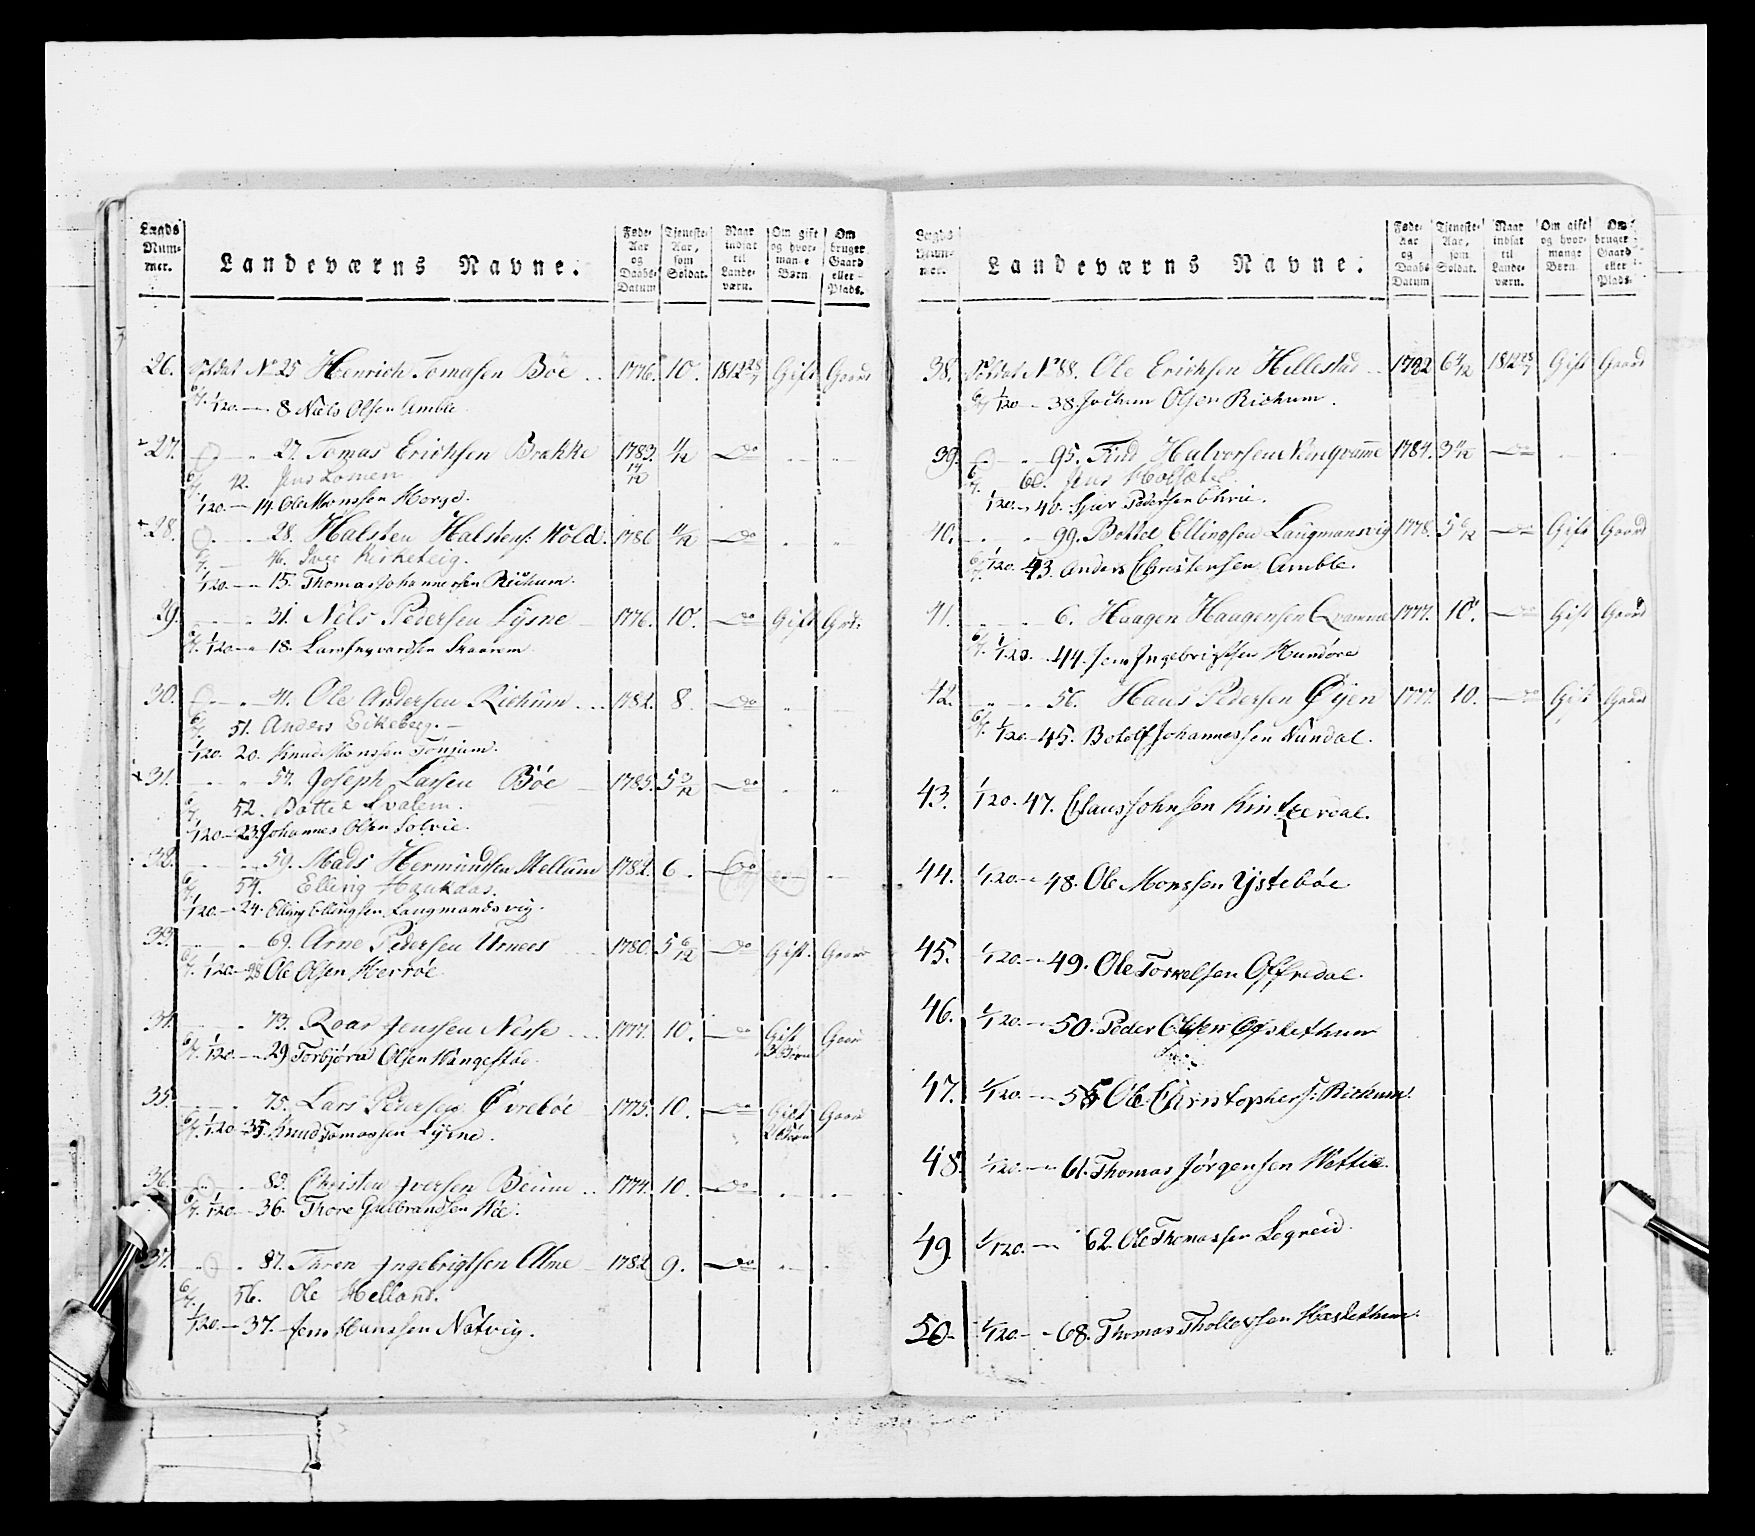 Lægds Num-mer.
Landeværns Navne.
Føde-Aar og Daabs-Datum
Tjeneste-Aar, som Soldat.
Naar indsat til Lande-værn.
Om gift og hvor-mange Børn
Om bruger Gaard eller Plads.
26. Soldat No 25 Henrich Tomasen Böe .. 1776. 10. 1812 25/7 Gift Gaard
6/7. 1/120. — 8 Niels Olsen Amble
27. — " 27. Tomas Erichsen Brakke 1783. 4/12 — do
6/7 12. Jens Lomen
1/120. — 14. Ole Monssen Horge.
28. — " 28. Halsten Halstens: Wold. 1786 4/12 — do
6/7. 46. Iver Kirketeig.
1/120. — 15. Thomas Johannessen Rickum.
29. — " 31. Niels Pedersen Lysne 1776. 10. — do Gift Grd.
6/7. 1/120. — 18. Lars Skaarum
30. — " 41. Ole Andersen Rickum ... 1782. 8 — do
6/7 51. Anders Eikeberg. —
1/120. 20. Knud Monssen Tönjum.
31. — " 54. Joseph Larsen Böe 1785. 5 — do
6/7 52. Bottel Qvalem.
1/120 — 23. Johannes Olsen Solvie.
32. — " 59. Mads Hermundsen Mellum 1782. 6. — do
6/7 54. Elling Haukaas.
1/120. — 24. Elling Ellingsen Laugmandsvig.
33. — " 69. Arne Pedersen Urnees 1780. 5 6/12 — do Gift. Gaard
6/7. 1/120. — 28 Ole Olsen Herröe
34. — " 73. Roar Jenssen Nesse ... 1777. 10. — do Gift 3 Börn Gaard
6/7. 1/120. — 29 Torbjörn Olsen Wangestad.
35. — " 75. Lars Pedersen Øvreböe 1775. 10. — do Gift 2 Börn Gaard
6/7. 1/120 35. Knud Tomassen Lysne.
36. — " 83. Christen Iversen Beium .. 1774. 10. — do
6/7. 1/120. — 36. Thore Gulbrandsen Wee.
37. — " 87. Ingebrigtsen Alme 1782 9. — do
6/7. 56. Ole Helland.
1/120. — 37. Jens Hanssen Natvig.
Lægds Num-mer.
Landeværns Navne.
Føde-Aar og Daabs Datum
Tjeneste-Aar, som Soldat.
Naar indsat til Lande-værn.
Om gift og hvor-mange Børn
Om bruger Gaard eller Plads.
38. Soldat No 88. Ole Erichsen Hillestad .. 1782 6 1812 25/7 Gift Gaard
6/7 1/120 — 38. Jochum Olsen Rickum.
39. — " 95. Find Halvorsen 1784. 3 — do
6/7. 60. Jens
1/120. — 40. Sjur Pedersen
40. — " 99. Bottel Ellingsen Laugmansvig 1778. 5 6/12 — do Gift Gaard
6/7. 1/120. 43. Anders Christensen Amble.
41. — " 6. Haagen Haagensen Qvamme 1777. 10. — do Gift Gaard
6/7. 1/120. 44. Jens Ingebrigtsen Hundere
42. — " 56. Hans Pedersen Øyen 1777. 10. — do Gift Gaard
6/7. 1/120 — 45. Botolf Johannessen Nundal.
43. 1/120. 47. Claus Johnsen Kinserdal.
44. 1/120. — 48. Ole Monssen Ysteböe
45. 1/120. — 49. Ole Torkelsen Offredal.
46. 1/120. — 50. Peder Olsen
47. 1/120. — Ole Christophers: Rickum.
48. 1/120. — 61. Thomas Jörgensen Wettie.
49. 1/120. — 62. Ole Thomassen Legreid.
50. 1/120. — 68. Thomas Thollevsen Hæskethum.